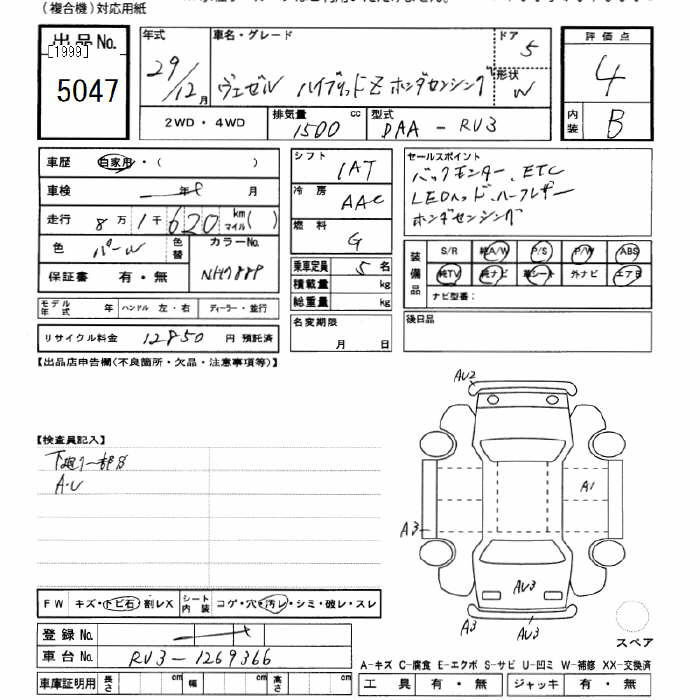 (複合機)対応用紙
出品No.
[1999]
5047
年式
29/12月
車名・グレード
ヴェゼル ハイブリッドZ ホンダセンシング
ドア
5
形状
W
2WD・4WD
排気量
1500 cc
型式
DAA-RU3
評価点
4
内装
B
車歴 自家用・( )
車検 年 月
走行 8万1千620 km マイル( )
色 パール 色替
カラーNo.
NH788P
保証書 有・無
モデル年式 年 ハンドル 左・右 ディーラー・並行
リサイクル料金 12850 円 預託済
シフト
IAT
冷房
AAC
燃料
G
乗車定員 5名
積載量 kg
総重量 kg
名変期限
月 日
セールスポイント
バックモニター、ETC
LEDヘッド、ハーフレザー
ホンダセンシング
装備品
S/R 純A/W P/S P/W ABS
純TV 純ナビ 革シート 外ナビ エアB
ナビ型番:
後日品
【出品店申告欄(不良箇所・欠品・注意事項等)】
【検査員記入】
下廻り一部分
A・U
AU2
A1
A3
AU3
A3
AU3
スペア
FW キズ・トビ石・割レX
シート内装 コゲ・穴・汚レ・シミ・破レ・スレ
登録No.
車台No. RU3-1269366
車庫証明用 長さ cm 幅 cm 高さ cm
A-キズ C-腐食 E-エクボ S-サビ U-凹ミ W-補修 XX-交換済
工具 有・無 ジャッキ 有・無